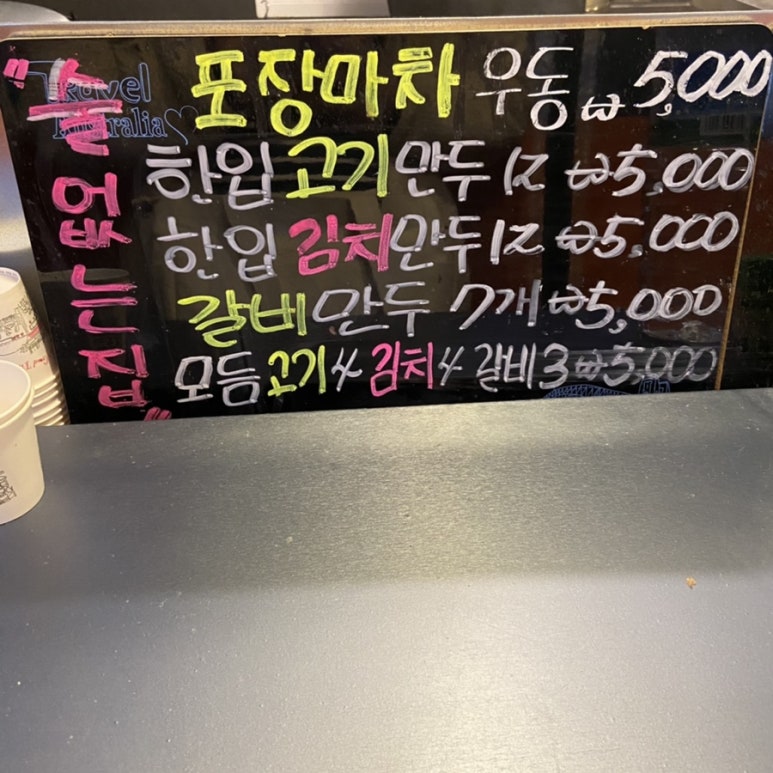 "술 없는집"
포장마차 우동 ₩5,000
한입 고기만두 12 ₩5,000
한입 김치만두 12 ₩5,000
갈비만두 7개 ₩5,000
모듬 고기4 김치4 갈비3 ₩5,000
Travel